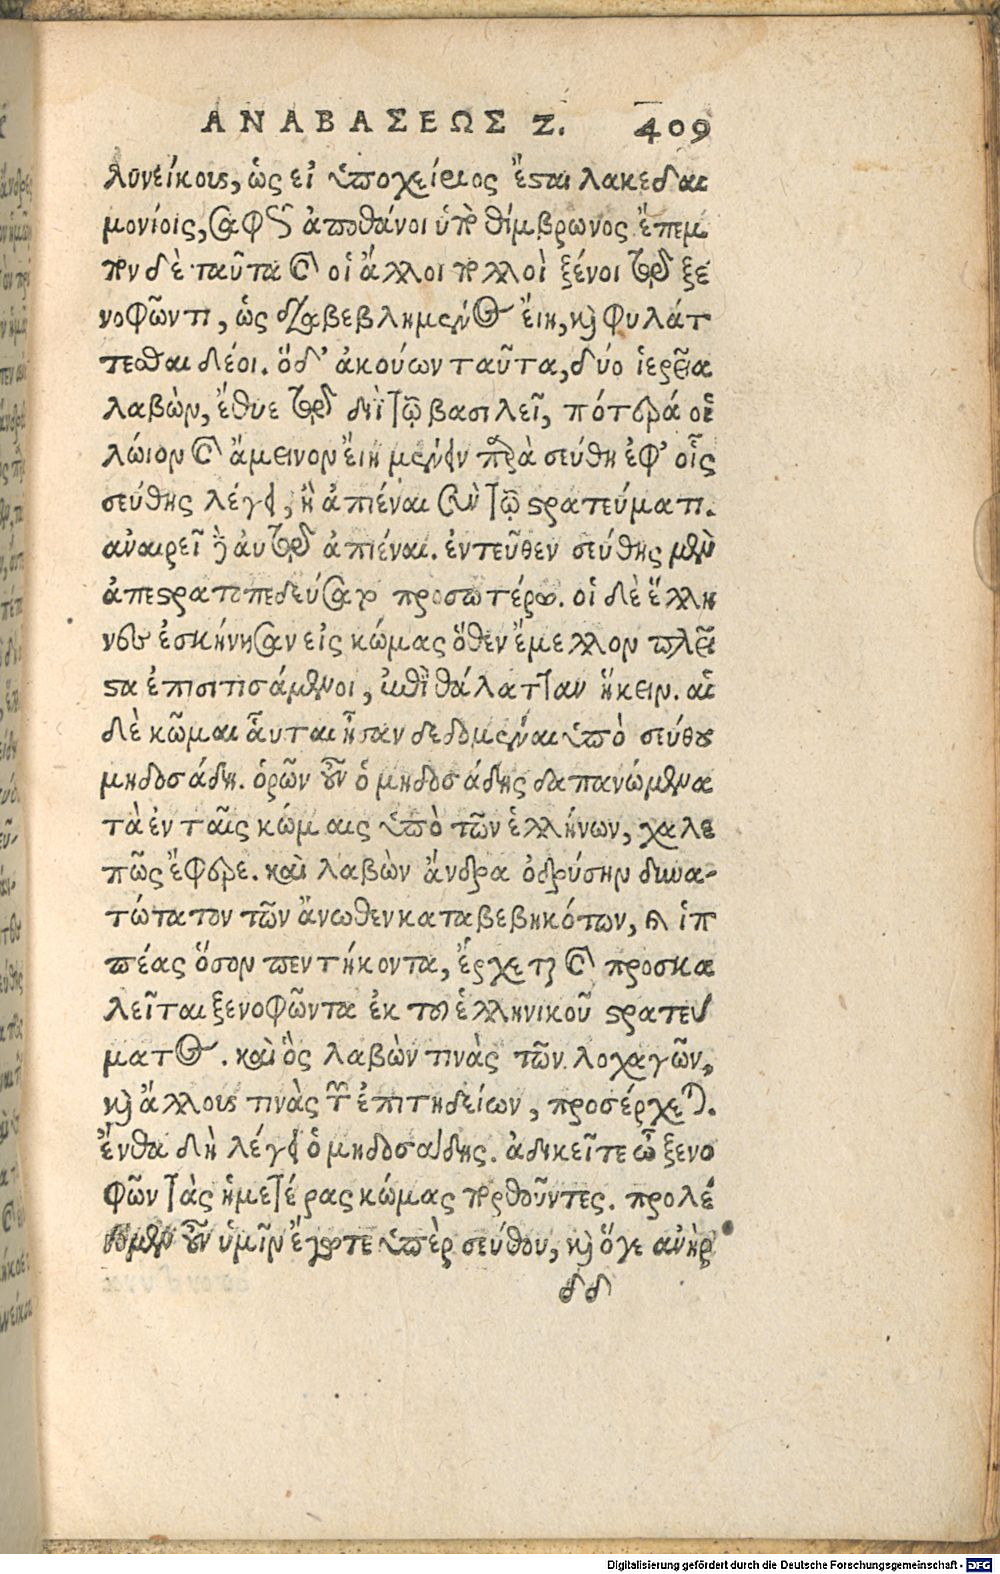 ΑΝΑΒΑΣΕΩΣ Ζ. 409
λυνείκους, ὡς εἰ ὑποχείριος ἔσται λακεδαι
μονίοις, σαφῶς ἀποθάνοι ὑπὸ θίμβρωνος ἔπεμ
πον δὲ ταῦτα καὶ οἱ ἄλλοι πολλοὶ ξένοι τῷ ξε
νοφῶντι, ὡς διαβεβλημένος εἴη, καὶ φυλάτ
τεσθαι δέοι. ὅδ' ἀκούων ταῦτα, δύο ἱερεῖα
λαβὼν, ἔθυε τῷ διῒ τῷ βασιλεῖ, πότερά οἱ
λώιον καὶ ἄμεινον εἴη μένειν παρὰ σεύθῃ ἐφ' οἷς
σεύθης λέγει, ἢ ἀπιέναι σὺν τῷ στρατεύματι.
ἀναιρεῖ δὲ αὐτῷ ἀπιέναι. ἐντεῦθεν σεύθης μὲν
ἀπεστρατοπεδεύσατο προσωτέρω. οἱ δὲ ἕλλη
νες ἐσκήνησαν εἰς κώμας ὅθεν ἔμελλον πλεῖ
στα ἐπισιτισάμενοι, ἐπὶ θάλατταν ἥκειν. αἱ
δὲ κῶμαι αὗται ἦσαν δεδομέναι ὑπὸ σεύθου
μηδοσάδῃ. ὁρῶν οὖν ὁ μηδοσάδης δαπανώμενα
τὰ ἐν ταῖς κώμαις ὑπὸ τῶν ἑλλήνων, χαλε
πῶς ἔφερε. καὶ λαβὼν ἄνδρα ὀδρύσην δυνα-
τώτατον τῶν ἄνωθεν καταβεβηκότων, καὶ ἱπ
πέας ὅσον πεντήκοντα, ἔρχεται καὶ προσκα
λεῖται ξενοφῶντα ἐκ τοῦ ἑλληνικοῦ στρατεύ
ματος. καὶ ὃς λαβὼν τινὰς τῶν λοχαγῶν,
καὶ ἄλλους τινὰς τῶν ἐπιτηδείων, προσέρχεται.
ἔνθα δὴ λέγει ὁ μηδοσάδης. ἀδικεῖτε ὦ ξενο
φῶν τὰς ἡμετέρας κώμας πορθοῦντες. προλέ
γομεν οὖν ὑμῖν ἔγωτε ὑπὲρ σεύθου, καὶ ὅγε ἀνὴρ
δδ
Digitalisierung gefördert durch die Deutsche Forschungsgemeinschaft - DFG